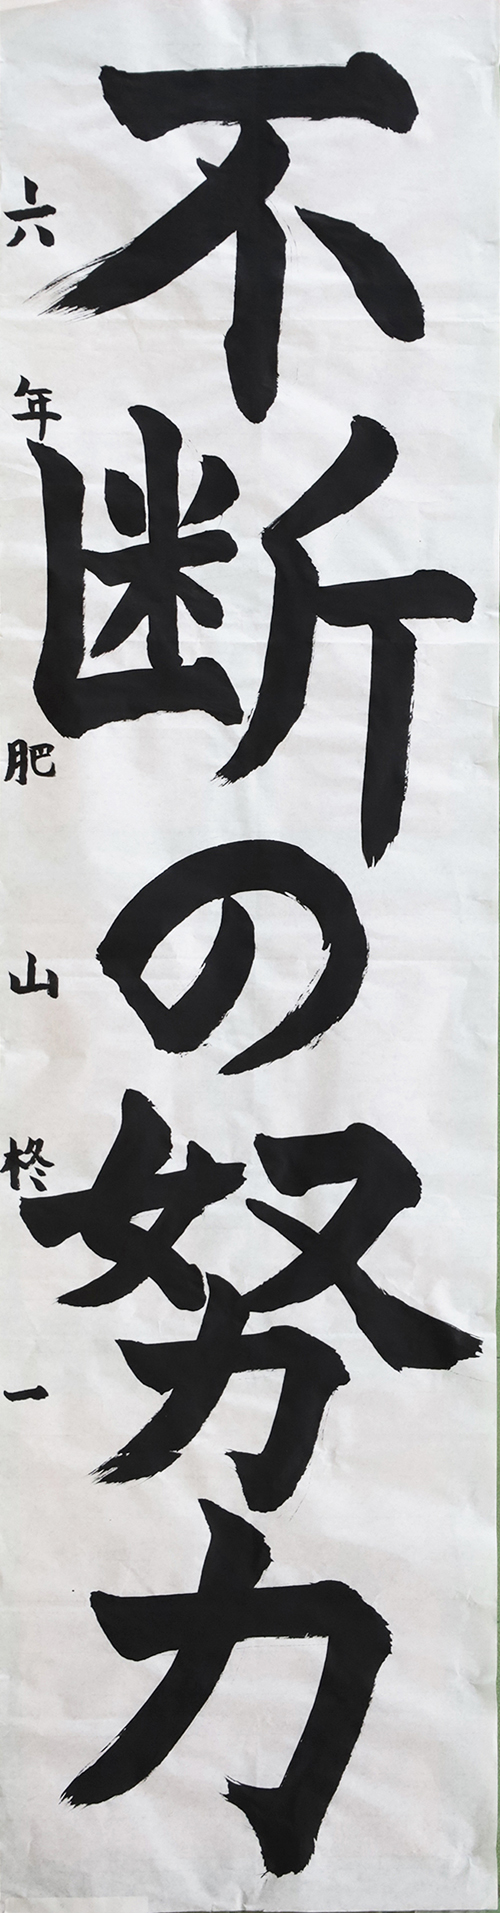 不断の努力
六年 肥山柊一